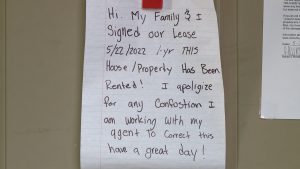 Hi. My Family & I
Signed our Lease
5/22/2022 1-yr THIS
House/Property Has Been
Rented! I apoligize
for any Confustion I
am working with my
agent To Correct this
have a great day!